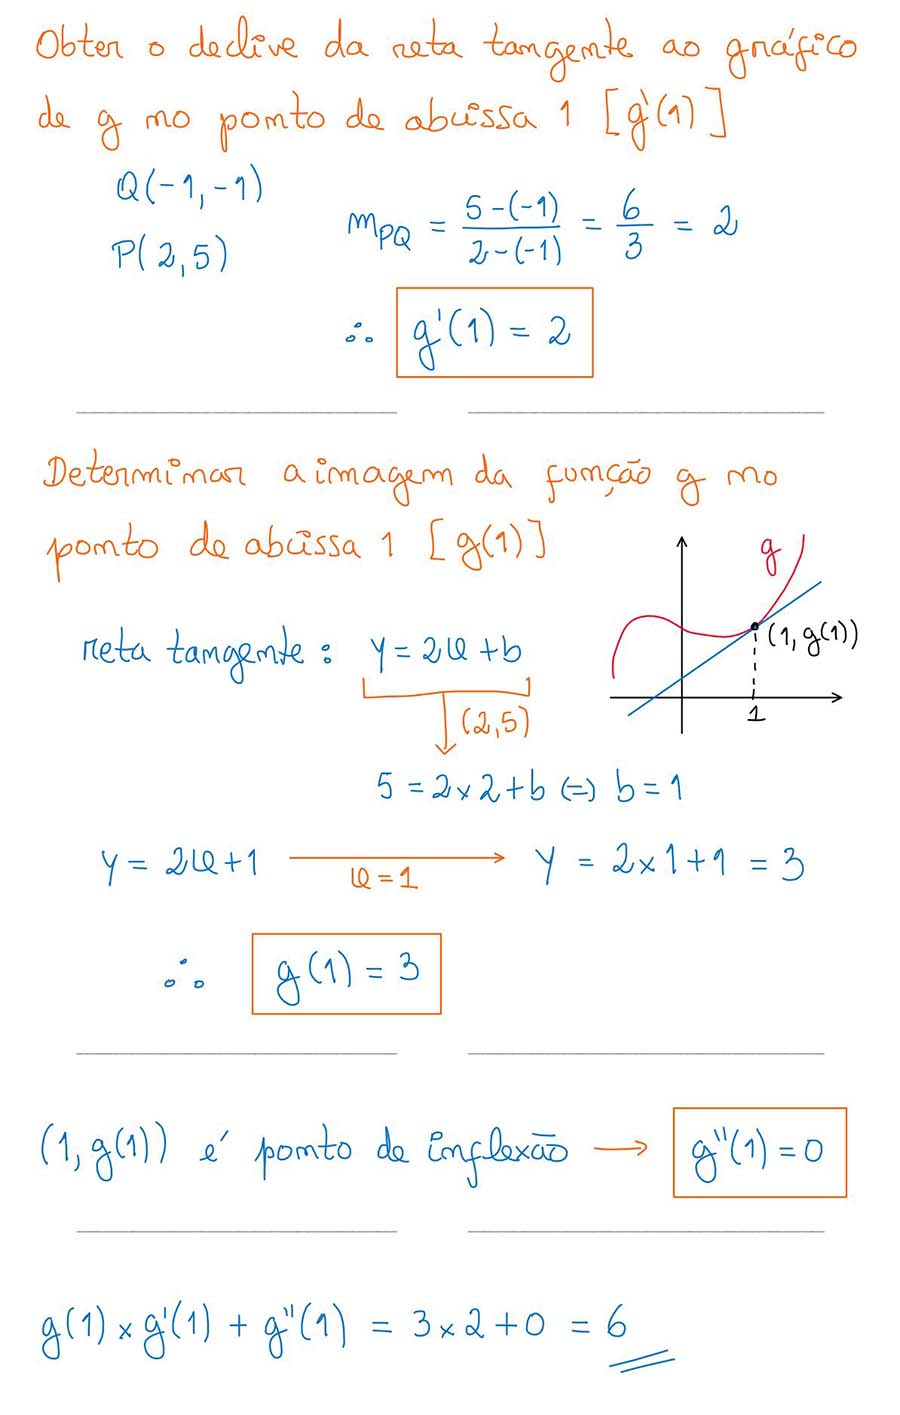 Obter o declive da reta tangente ao gráfico
de g no ponto de abcissa 1 [g'(1)]
Q(-1,-1)
P(2,5)
mPQ = 5-(-1)/2-(-1) = 6/3 = 2
∴ g'(1) = 2
Determinar a imagem da função g no
ponto de abcissa 1 [g(1)]
g
(1, g(1))
1
reta tangente: y = 2x + b
(2,5)
5 = 2×2+b (=) b = 1
y = 2x+1 → y = 2×1+1 = 3
x = 1
∴ g(1) = 3
(1, g(1)) é ponto de inflexão → g''(1) = 0
g(1) × g'(1) + g''(1) = 3×2+0 = 6